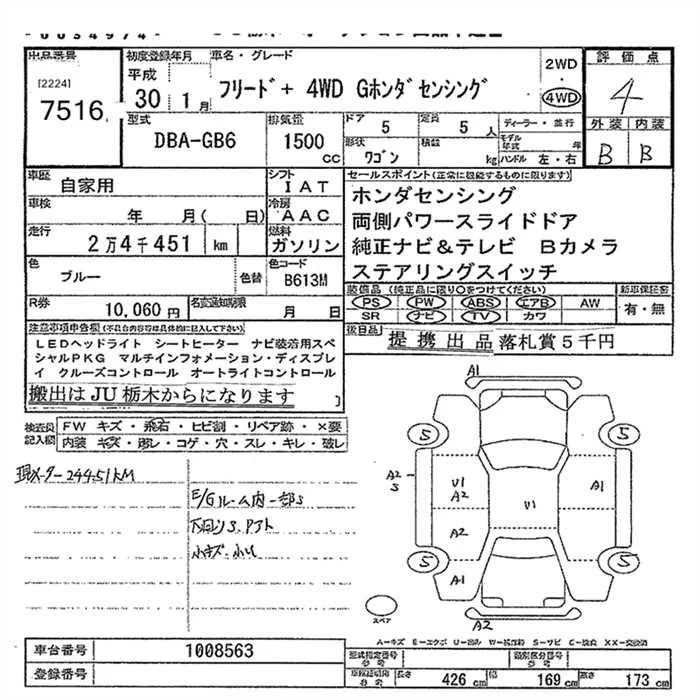 出品番号
[2224]
7516
初度登録年月
平成
30 1 月
車名・グレード
フリード+ 4WD Gホンダセンシング
2WD
4WD
評価点
4
外装 内装
B B
型式
DBA-GB6
排気量
1500 cc
ドア 5
定員 5 人
形状 ワゴン
積載 kg
ディーラー・並行
モデル年式 年
ハンドル 左・右
車歴 自家用
シフト IAT
車検 年 月( 日)
冷房 AAC
走行 2万4千451 km
燃料 ガソリン
色 ブルー
色替
色コード B613M
R券 10,060 円
名変通知期限 月 日
セールスポイント(正常に機能するものに限ります)
ホンダセンシング
両側パワースライドドア
純正ナビ&テレビ Bカメラ
ステアリングスイッチ
装備品 (純正品に限り〇をつけてください)
PS PW ABS エアB AW
SR ナビ TV カワ
新車保証書
有・無
後日品
提携出品 落札賞5千円
注意事項申告欄(不具合内容等は具体的に記入して下さい)
LEDヘッドライト シートヒーター ナビ装着用スペ
シャルPKG マルチインフォメーション・ディスプレ
イ クルーズコントロール オートライトコントロール
搬出はJU栃木からになります
検査員記入欄
FW キズ・飛石・ヒビ割・リペア跡・×要
内装 キズ・汚レ・コゲ・穴・スレ・キレ・破レ
現メーター24451KM
E/Gルーム内一部S
下回りS.アト
小キズ・小U
A1
S
S
A2
S
U1
A2
U1
A1
A2
A1
S
S
A2
スペア
A-キズ E-エクボ U-凹み W-補修跡 S-サビ C-腐食 XX-交換済
車台番号 1008563
登録番号
型式指定番号 参考
類別区分番号 参考
長さ 426 cm 幅 169 cm 高さ 173 cm